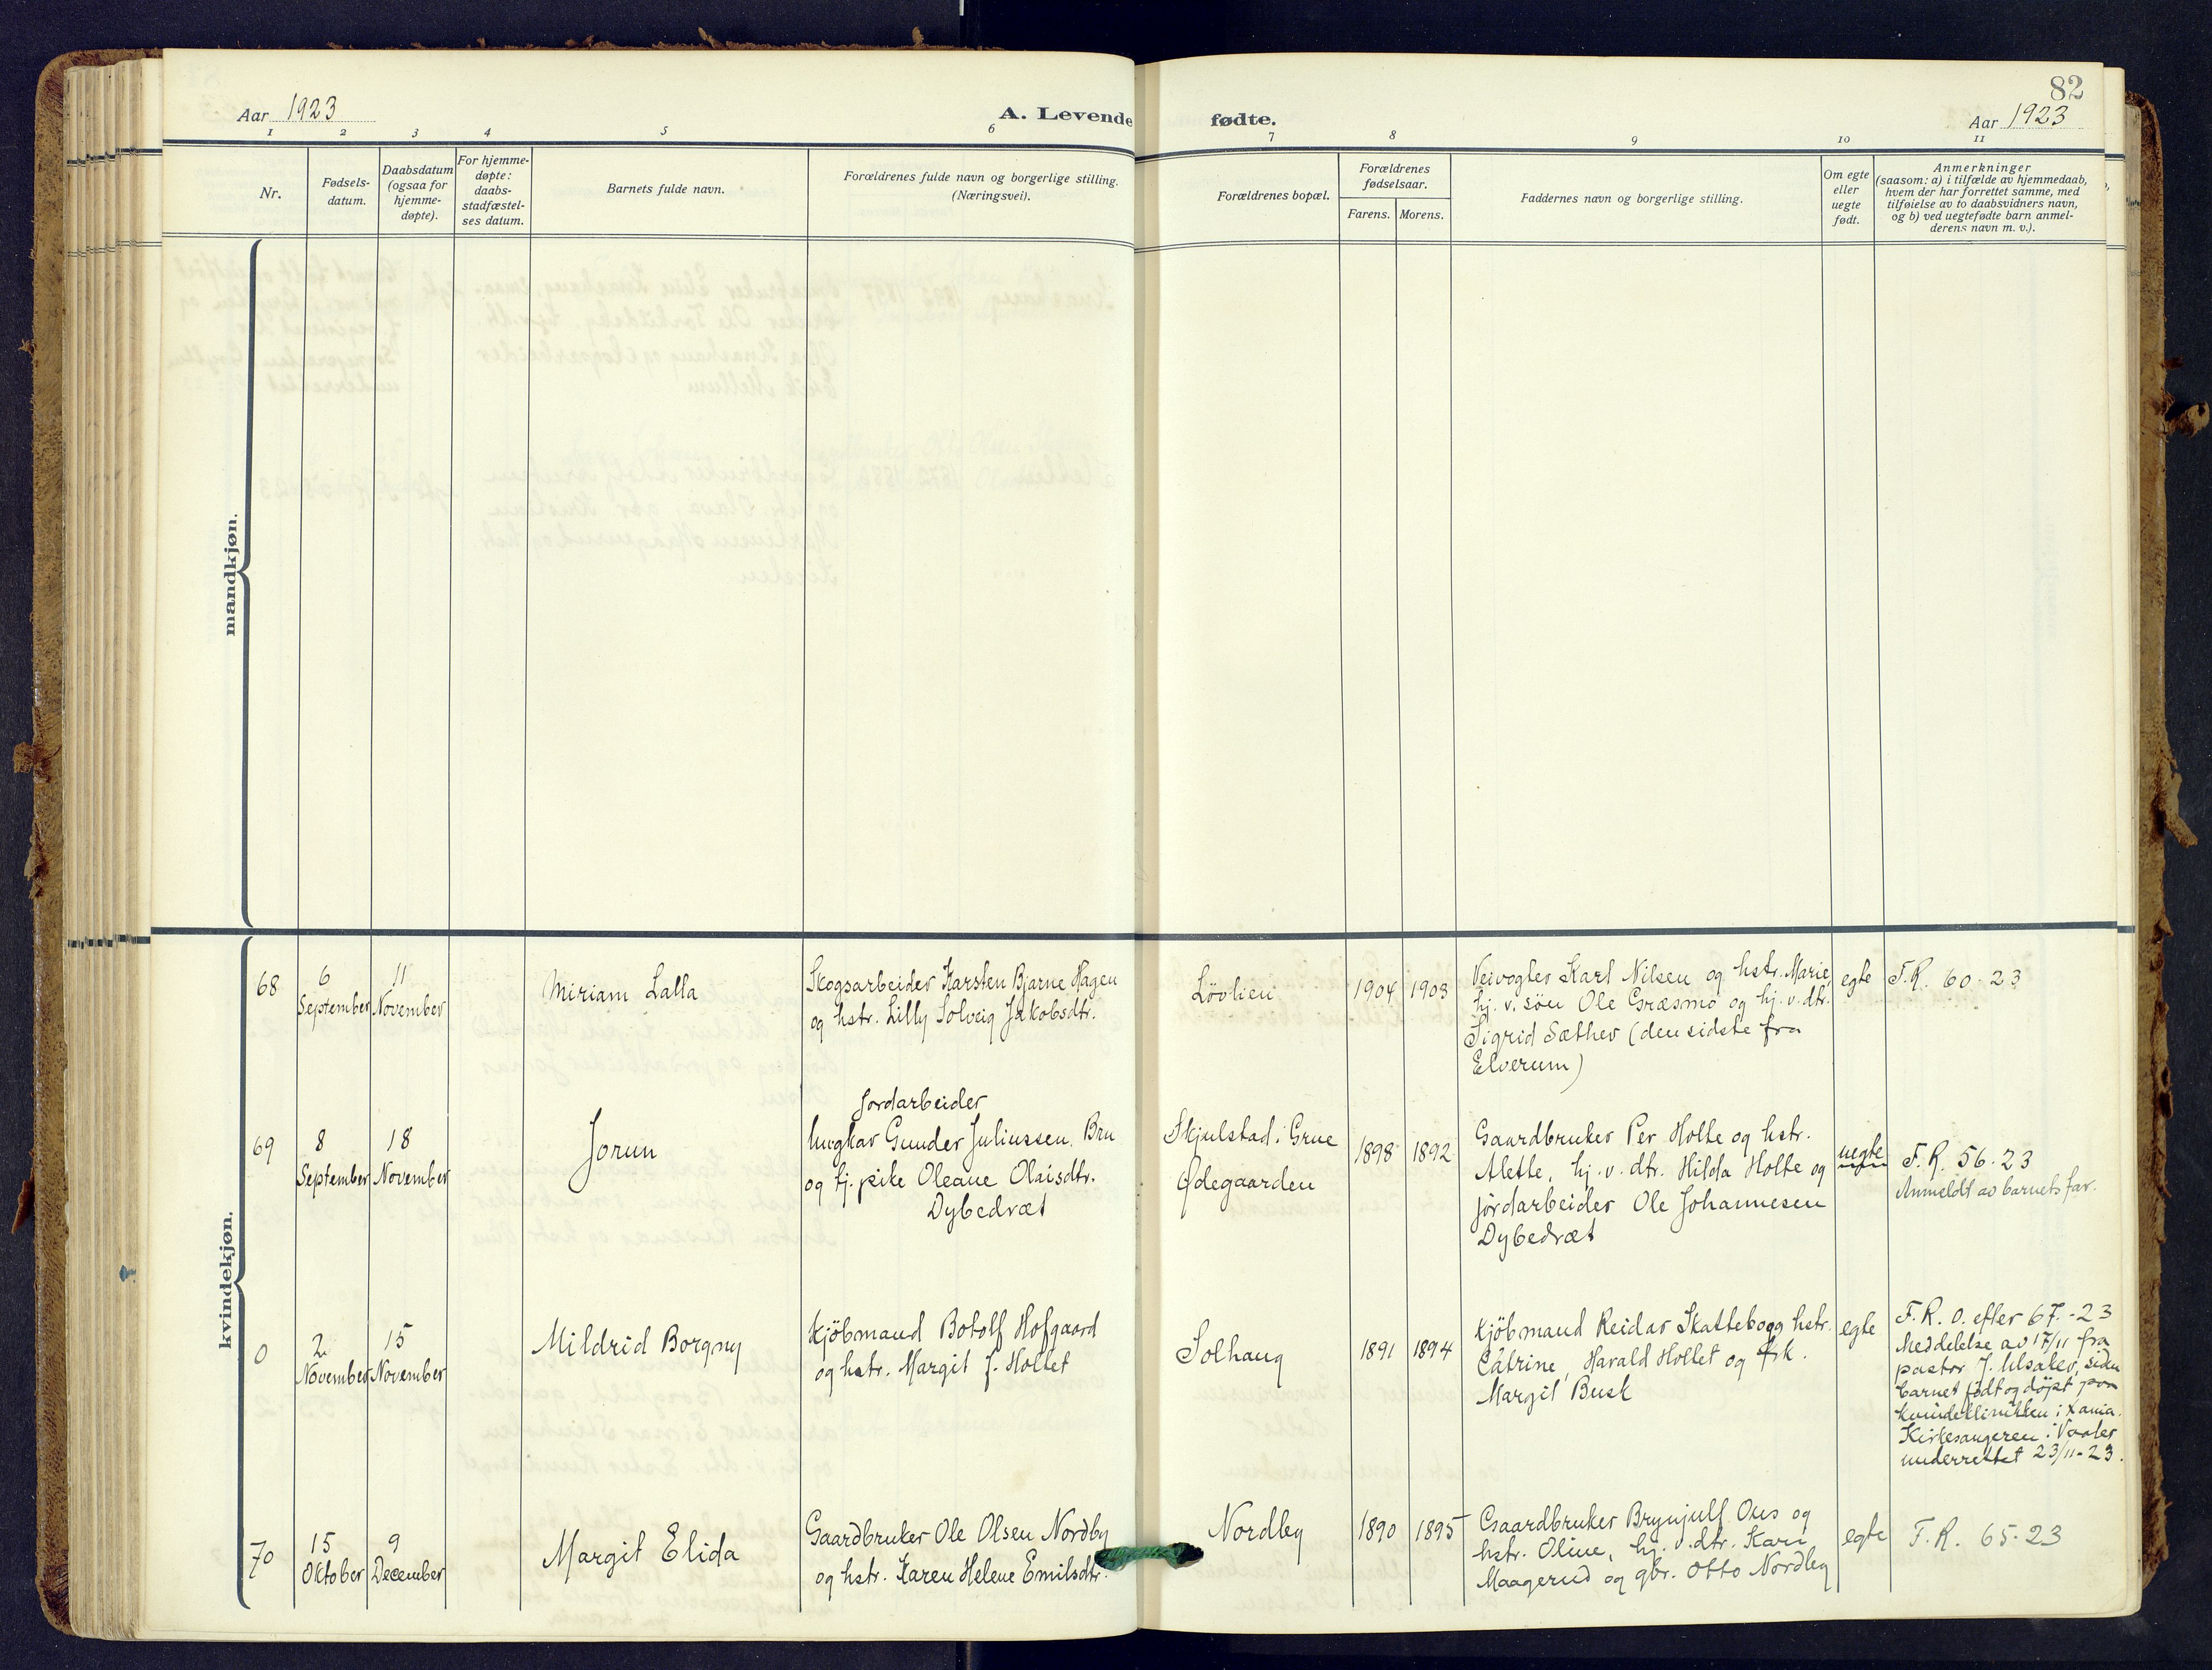 82
Aar 1923
A. Levende fødte.
Aar 1923
1 2 3 4 5 6 7 8 9 10 11
Nr.
Fødsels-
datum.
Daabsdatum
(ogsaa for
hjemme-
døpte).
For hjemme-
døpte:
daabs-
stadfæstel-
ses datum.
Barnets fulde navn.
Forældrenes fulde navn og borgerlige stilling.
(Næringsvei).
Forældrenes bopæl.
Forældrenes
fødselsaar.
Farens. Morens.
Faddernes navn og borgerlige stilling.
Om egte
eller
uegte
født.
Anmerkninger
(saasom: a) i tilfælde av hjemmedaab,
hvem der har forrettet samme, med
tilføielse av to daabsvidners navn,
og b) ved uegtefødte barn anmel-
derens navn m. v.).
mandkjøn.
kvindekjøn.
68
6
September
11
November
Miriam Lalla
Skogsarbeider Karsten Bjarne Hagen
og hstr. Lilly Solveig Jakobsdtr.
Lövlien
1904
1903
Veivogter Karl Nilsen og hstr. Marie,
hj. v. sön Ole Græsmo og hj. v. dtr.
Sigrid Sæther (den sidste fra
Elverum)
egte
F.R. 60-23
69
8
September
18
November
Jorun
Jordarbeider
Ungkar Gunder Juliussen Bru
og tj. pike Oleane Olaisdtr.
Dybedræt
Skjulstad i Grue
Ødegaarden
1898
1892
Gaardbruker Per Holte og hstr.
Alette, hj. v. dtr. Hilda Holte og
jordarbeider Ole Johannesen
Dybedræt
uegte
F.R. 56-23
Anmeldt av barnets far.
0
2
November
15
November
Mildrid Borgny
Kjöbmand Botolf Hofgaard
og hstr. Margit f. Holtet
Solhaug
1891
1894
Kjöbmand Reidar Skattebo og hstr.
Catrine, Harald Holtet og frk.
Margit Busk
egte
F.R. 0. efter 67-23
Meddelelse av 17/11 fra
pastor J. Ulsaker, siden
barnet födt og döpt paa
kvindeklinikken i Xania.
Kirkesangeren i Vaaler
underrettet 23/11-23.
70
15
Oktober
9
December
Margit Elida
Gaardbruker Ole Olsen Nordby
og hstr. Karen Helene Emilsdtr.
Nordby
1890
1895
Gaardbruker Brynjulf Ous og
hstr. Oline, hj. v. dtr. Kari
Maagerud og gbr. Otto Nordby
egte
F.R. 65-23